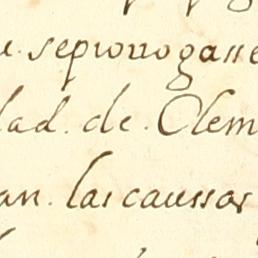 u. se prouogasse
dad. de. Clem
an. las caussas